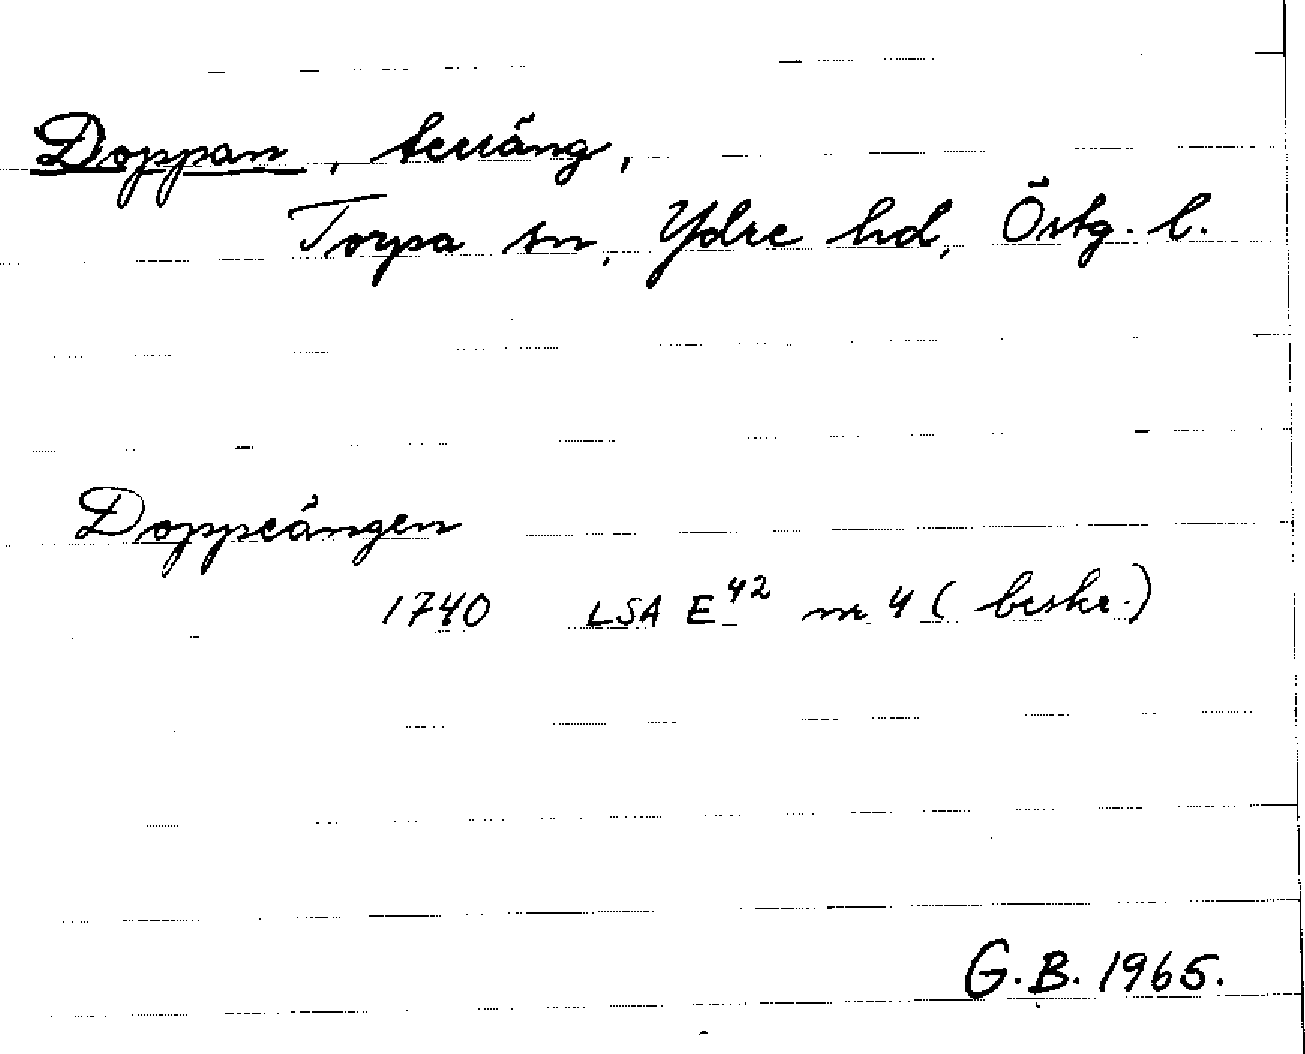 Doppan, terräng,
Torpa sn, Ydre hd, Östg. l.
Doppeängen
1740 LSA E42 nr 4 (beskr.)
G.B. 1965.